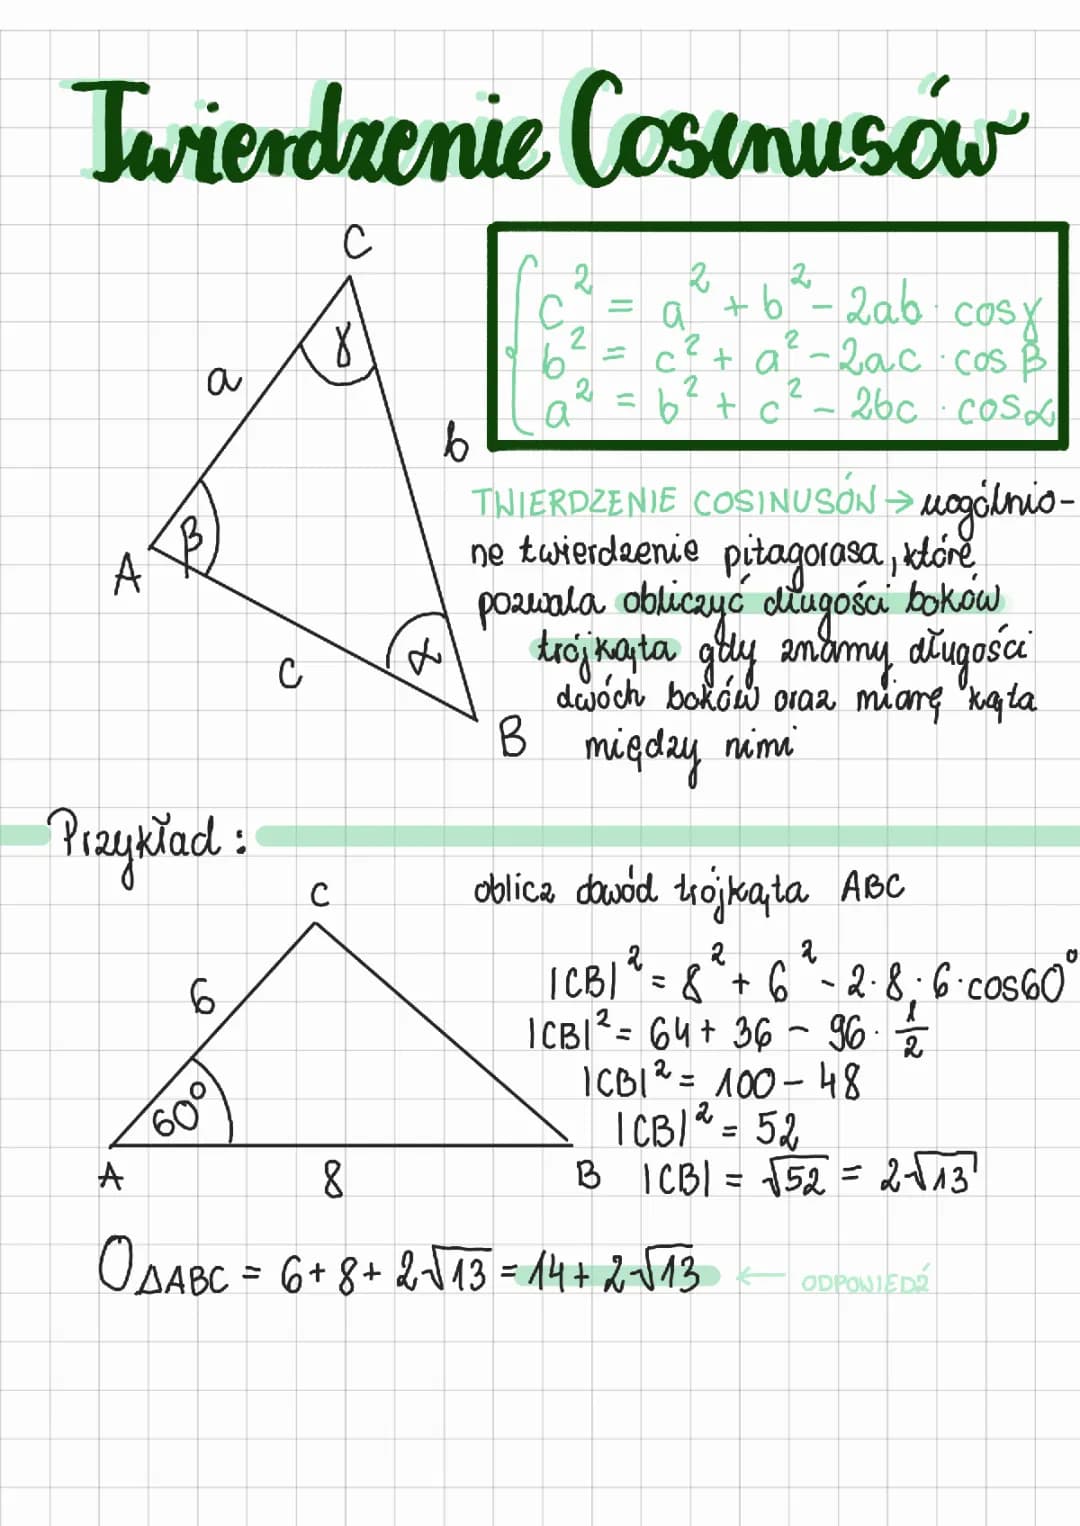 Twierdzenie Cosinusów
C
γ
a
b
β
A
α
c
B
c² = a² + b² - 2ab · cosγ
b² = c² + a² - 2ac · cos β
a² = b² + c² - 2bc · cosα
TWIERDZENIE COSINUSÓW → uogólnio-
ne twierdzenie pitagorasa, które
pozwala obliczyć długości boków
trójkąta gdy znamy długości
dwóch boków oraz miarę kąta
między nimi
Przykład:
C
6
60°
A
8
B
oblicz obwód trójkąta ABC
|CB|² = 8² + 6² - 2·8·6·cos60°
|CB|² = 64 + 36 - 96 · 1/2
|CB|² = 100 - 48
|CB|² = 52
|CB| = √52 = 2√13
O△ABC = 6 + 8 + 2√13 = 14 + 2√13 ← ODPOWIEDŹ